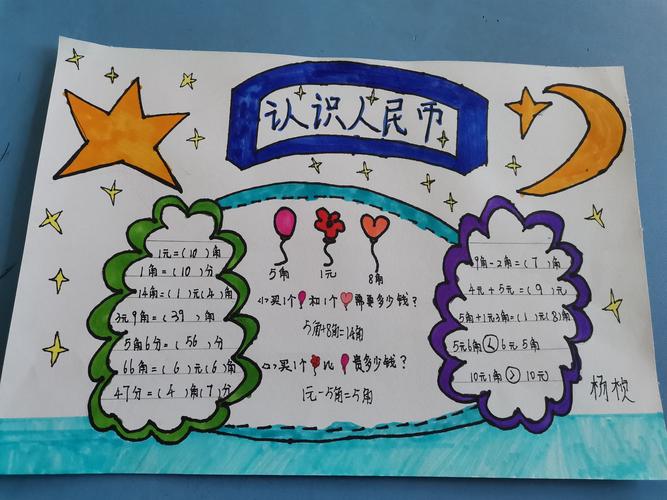 认识人民币
1元=(10)角
1角=(10)分
14角=(1)元(4)角
3元9角=(39)角
5角6分=(56)分
66角=(6)元(6)角
47分=(4)角(7)分
5角 1元 8角
<1>买1个和1个需要多少钱?
5角+8角=14角
<2>买1个比贵多少钱?
1元-5角=5角
9角-2角=(7)角
4元+5元=(9)元
5角+1元3角=(1)元(8)角
5元6角<6元5角
10元1角>10元
杨桢